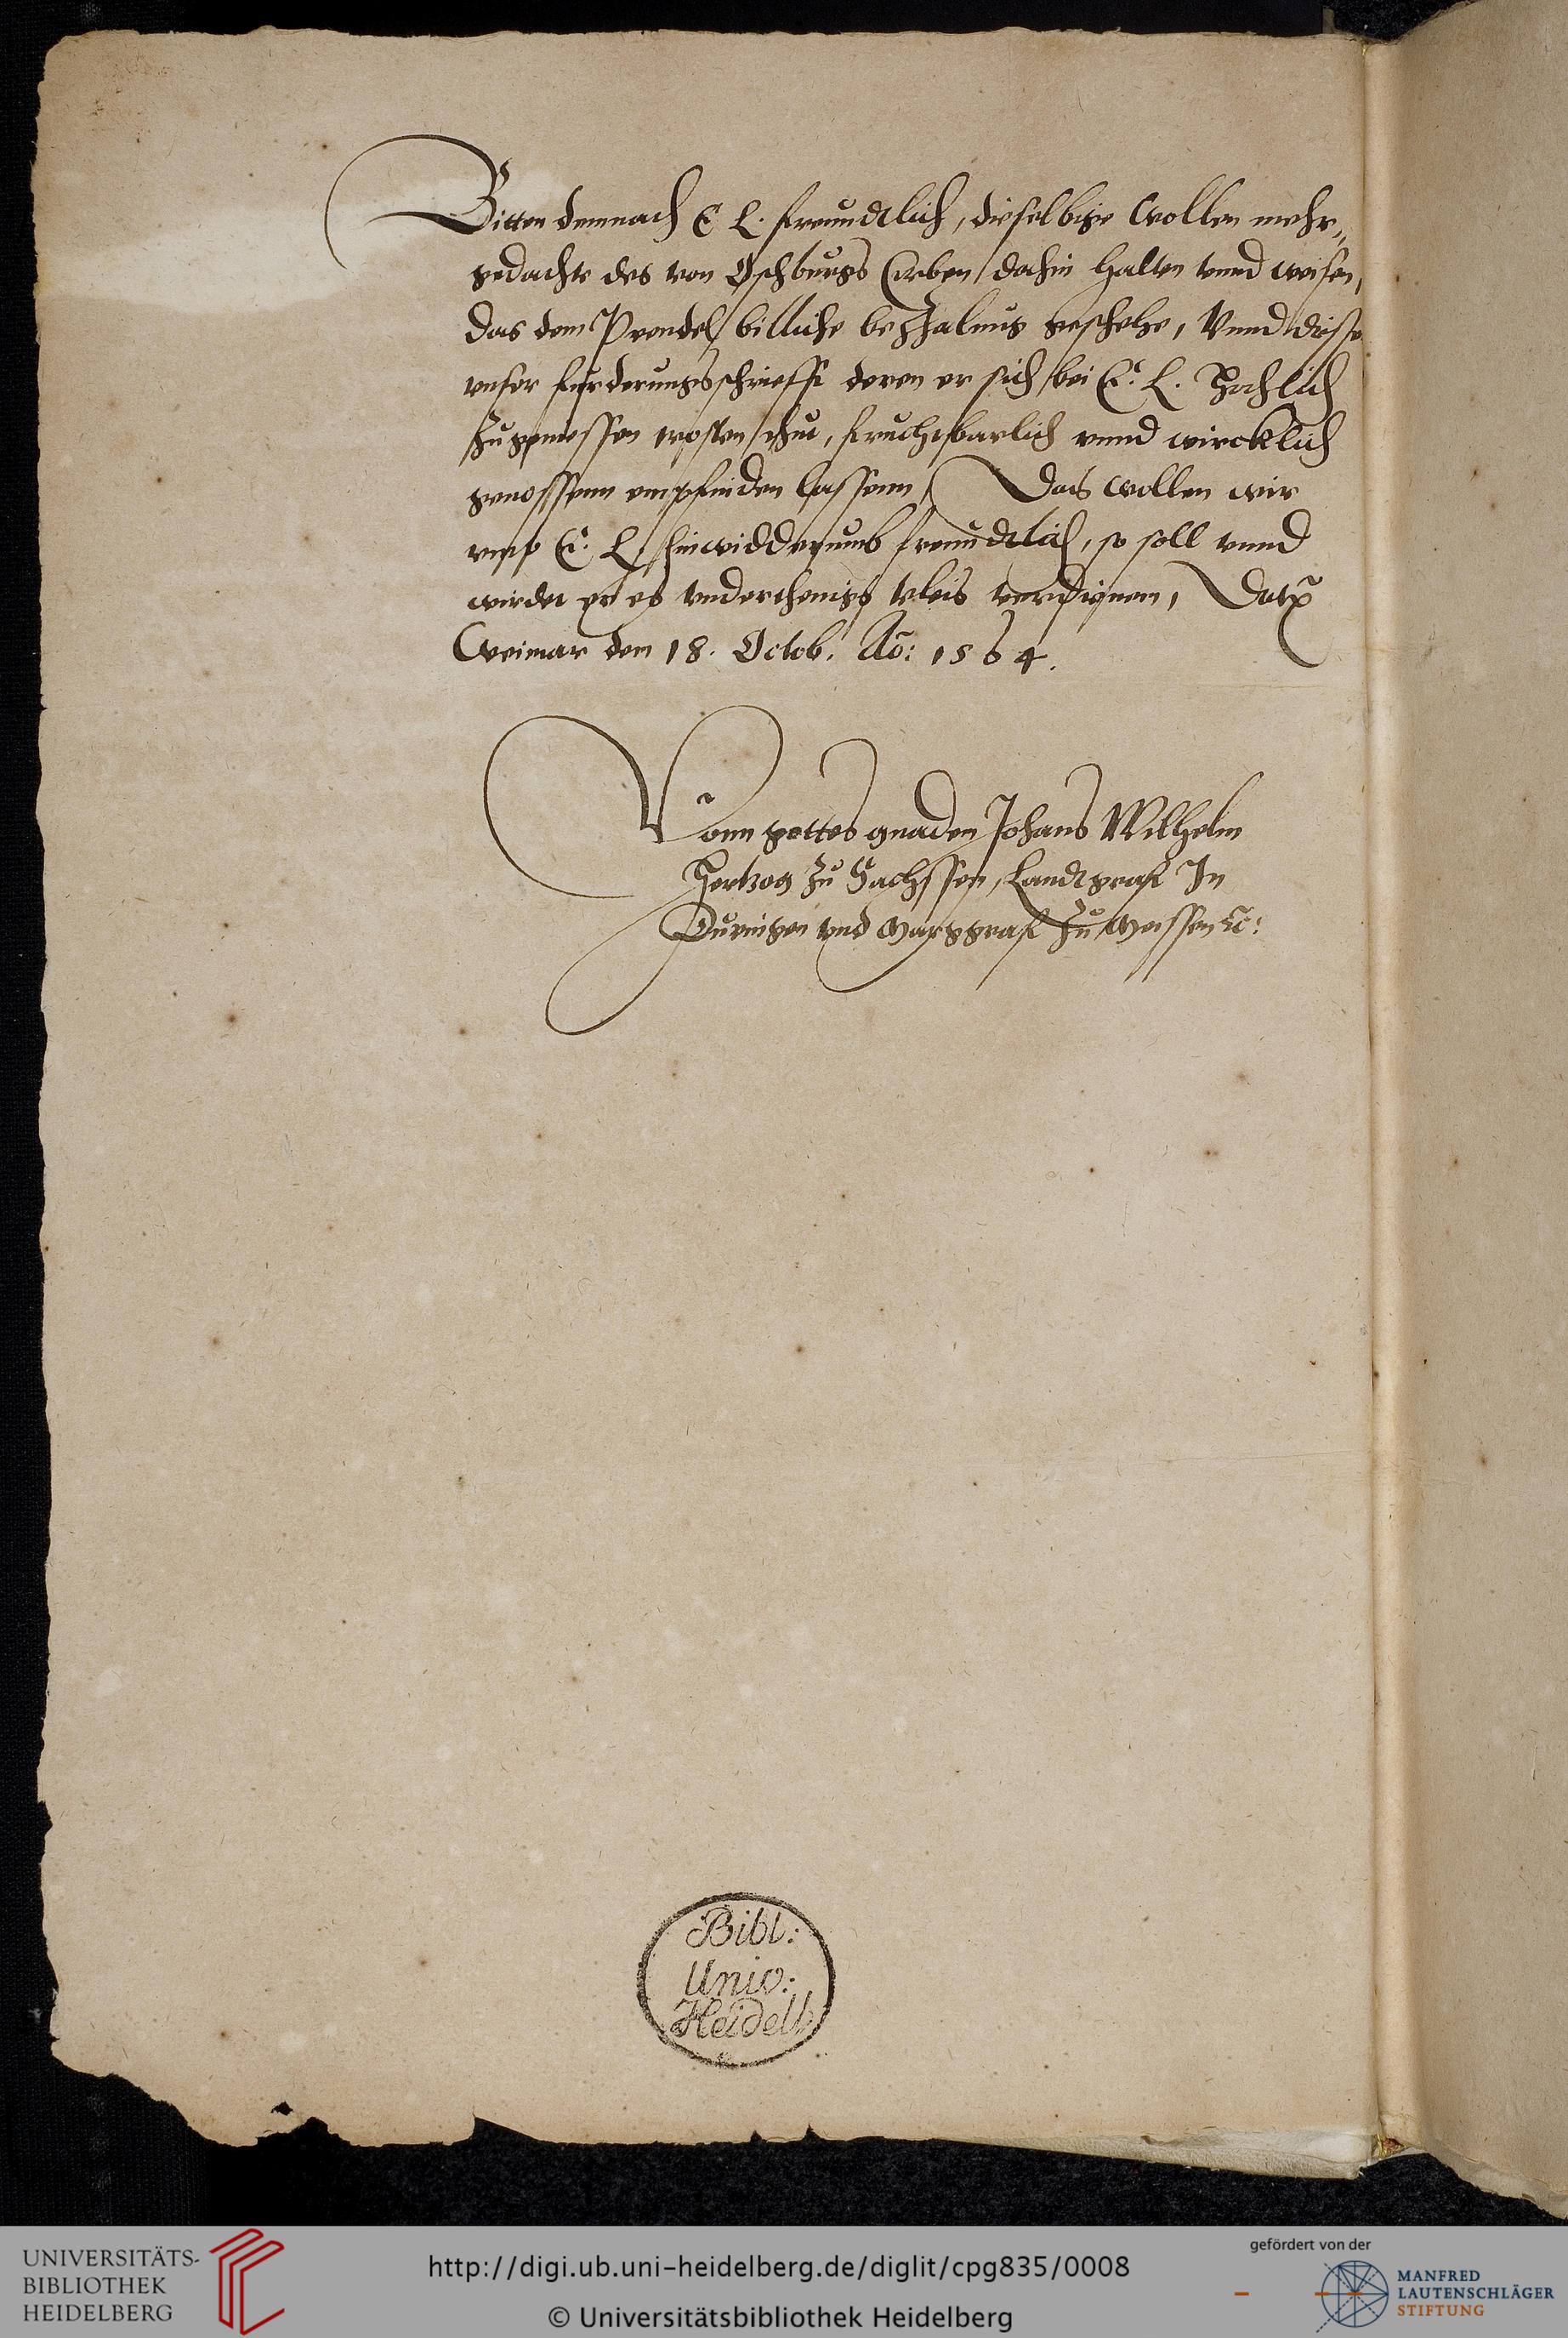 Bitten demnach E L. freundtlich, dieselbige wollen mehr„
gedachte des von Oschburgs Erben, dahin halten vnnd weisen,
das dem Prendel billiche bezhalung geschehe, Vnnd disse
vnser furderungsschriefft deren er sich bei E. L. Hochlich
zugeniessen trosten thut, fruchtbarlich vnnd wircklich
genossenn empfinden lassenn, Das wollen wir
vmb E. L. hinwidderumb freundtlich, so soll vnnd
wirdet er es vnderthenigs vleis verdienen, Datz
Weimar den 18. Octob. Ao: 1564.
Vonn gottes gnaden Johans Wilhelm
Hertzog zu Sachssen, Landtgraf In
Duringen vnd Marggraf zu Meissen ꝛc:
Bibl:
Univ:
Heidelb
UNIVERSITÄTS-
BIBLIOTHEK
HEIDELBERG
http://digi.ub.uni-heidelberg.de/diglit/cpg835/0008
© Universitätsbibliothek Heidelberg
gefördert von der
MANFRED
LAUTENSCHLÄGER
STIFTUNG